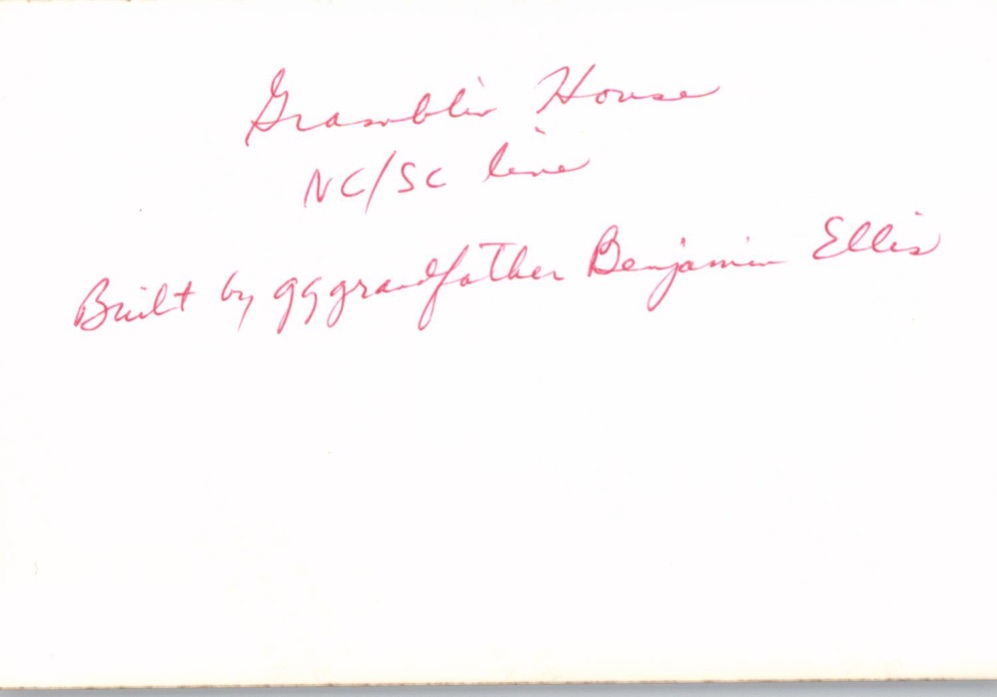 Gramblin House
NC/SC line
Built by gggrandfather Benjamin Ellis